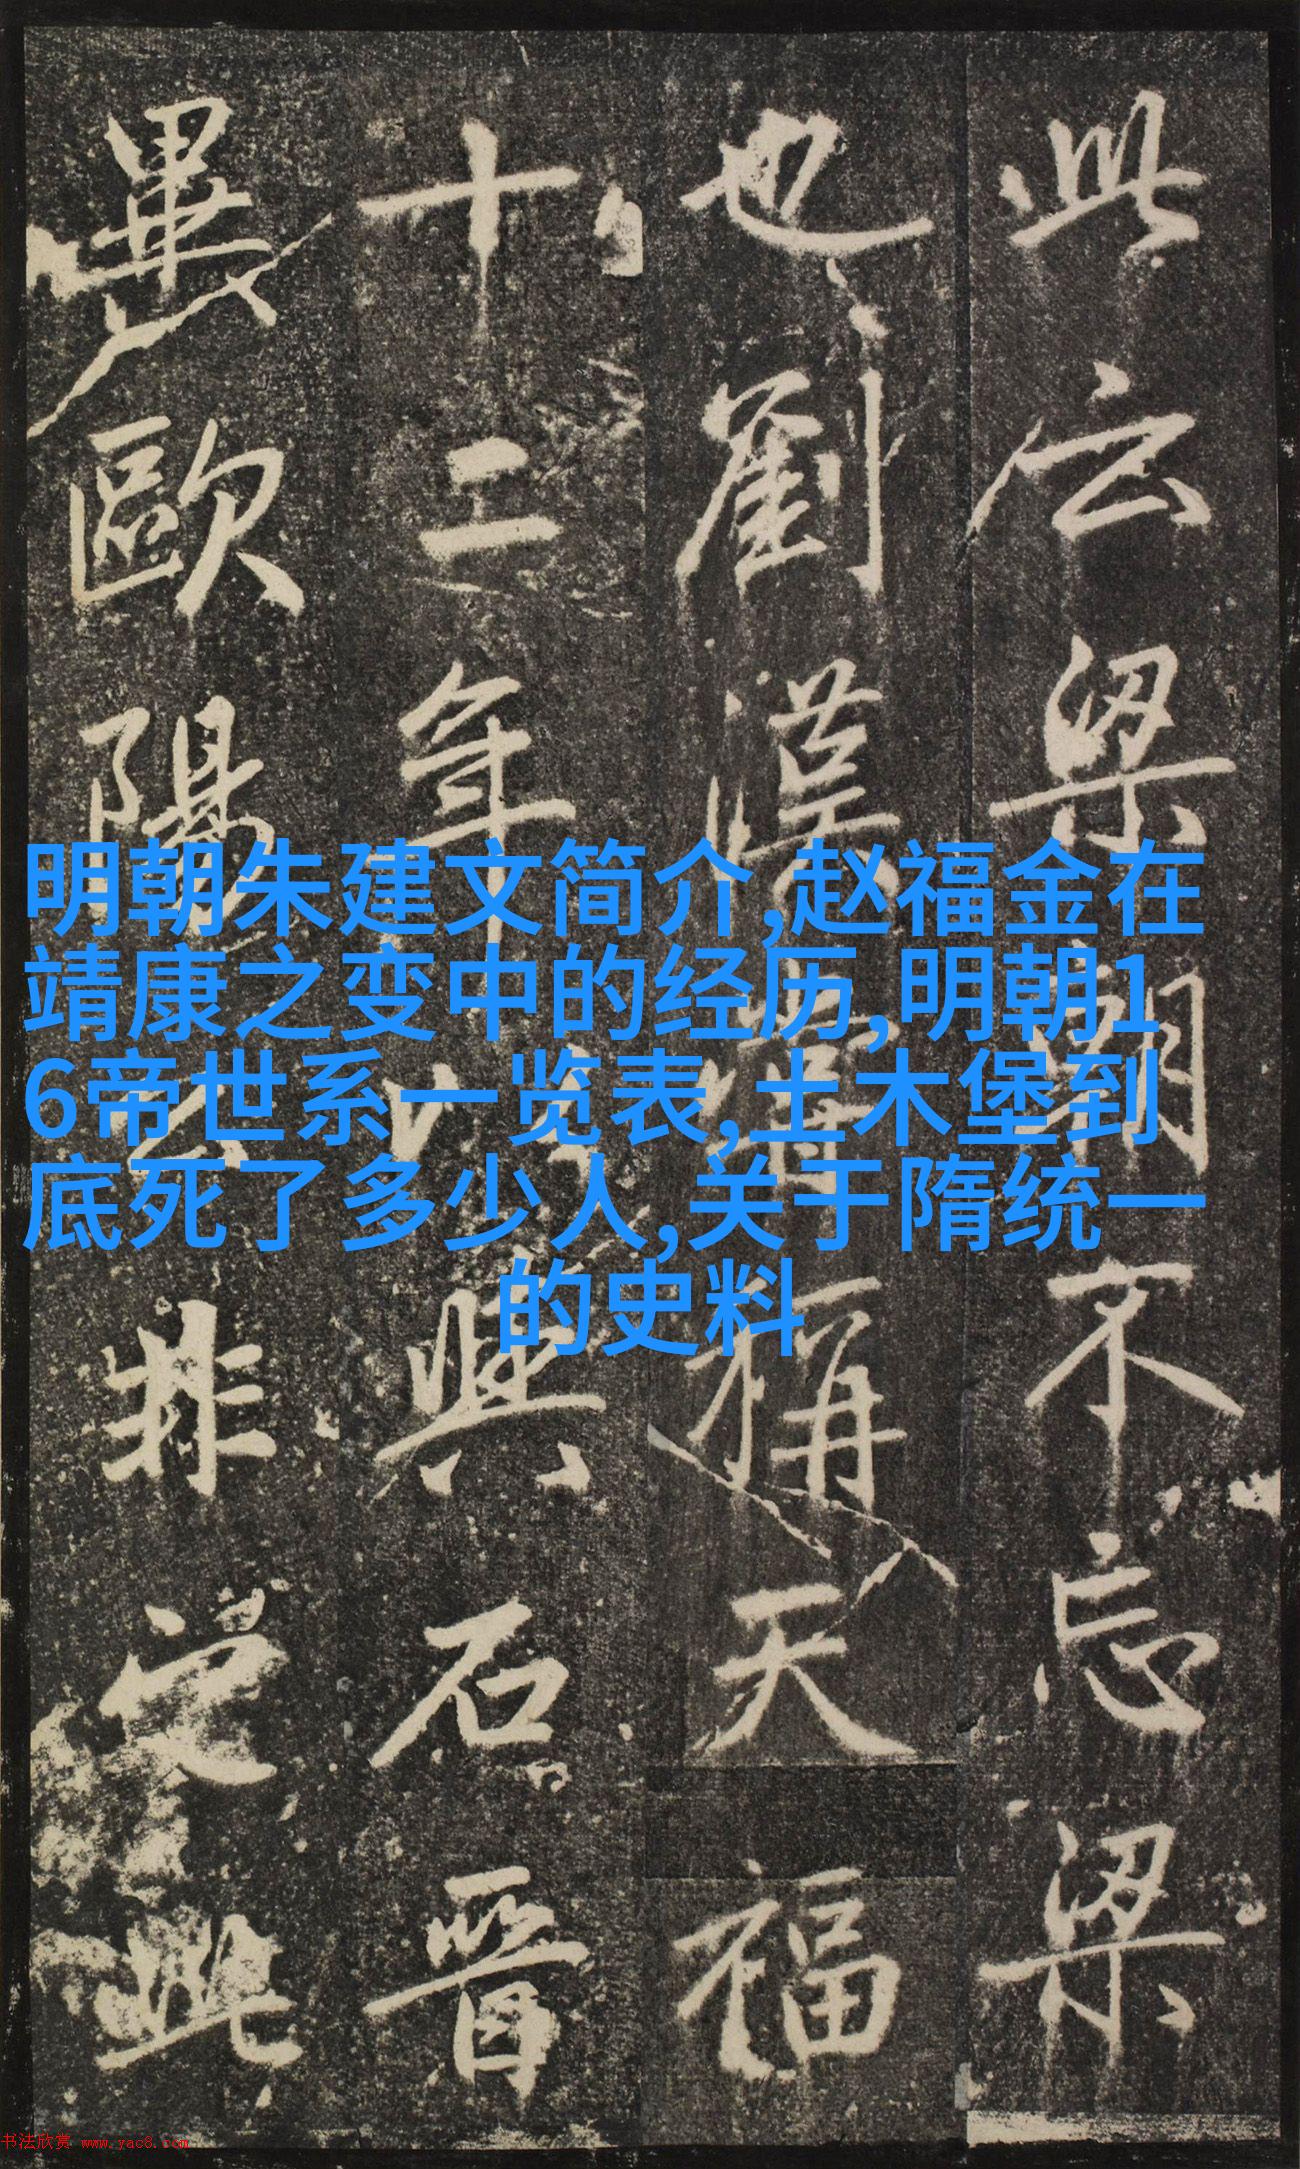 此云梁朝不忘梁
也劉漢嘗稱天福
十二年與石晉
畢歐陽公非此
明朝朱建文简介,赵福金在
靖康之变中的经历,明朝1
6帝世系一览表,土木堡到
底死了多少人,关于隋统一
的史料
书法欣赏 www.yac8.com